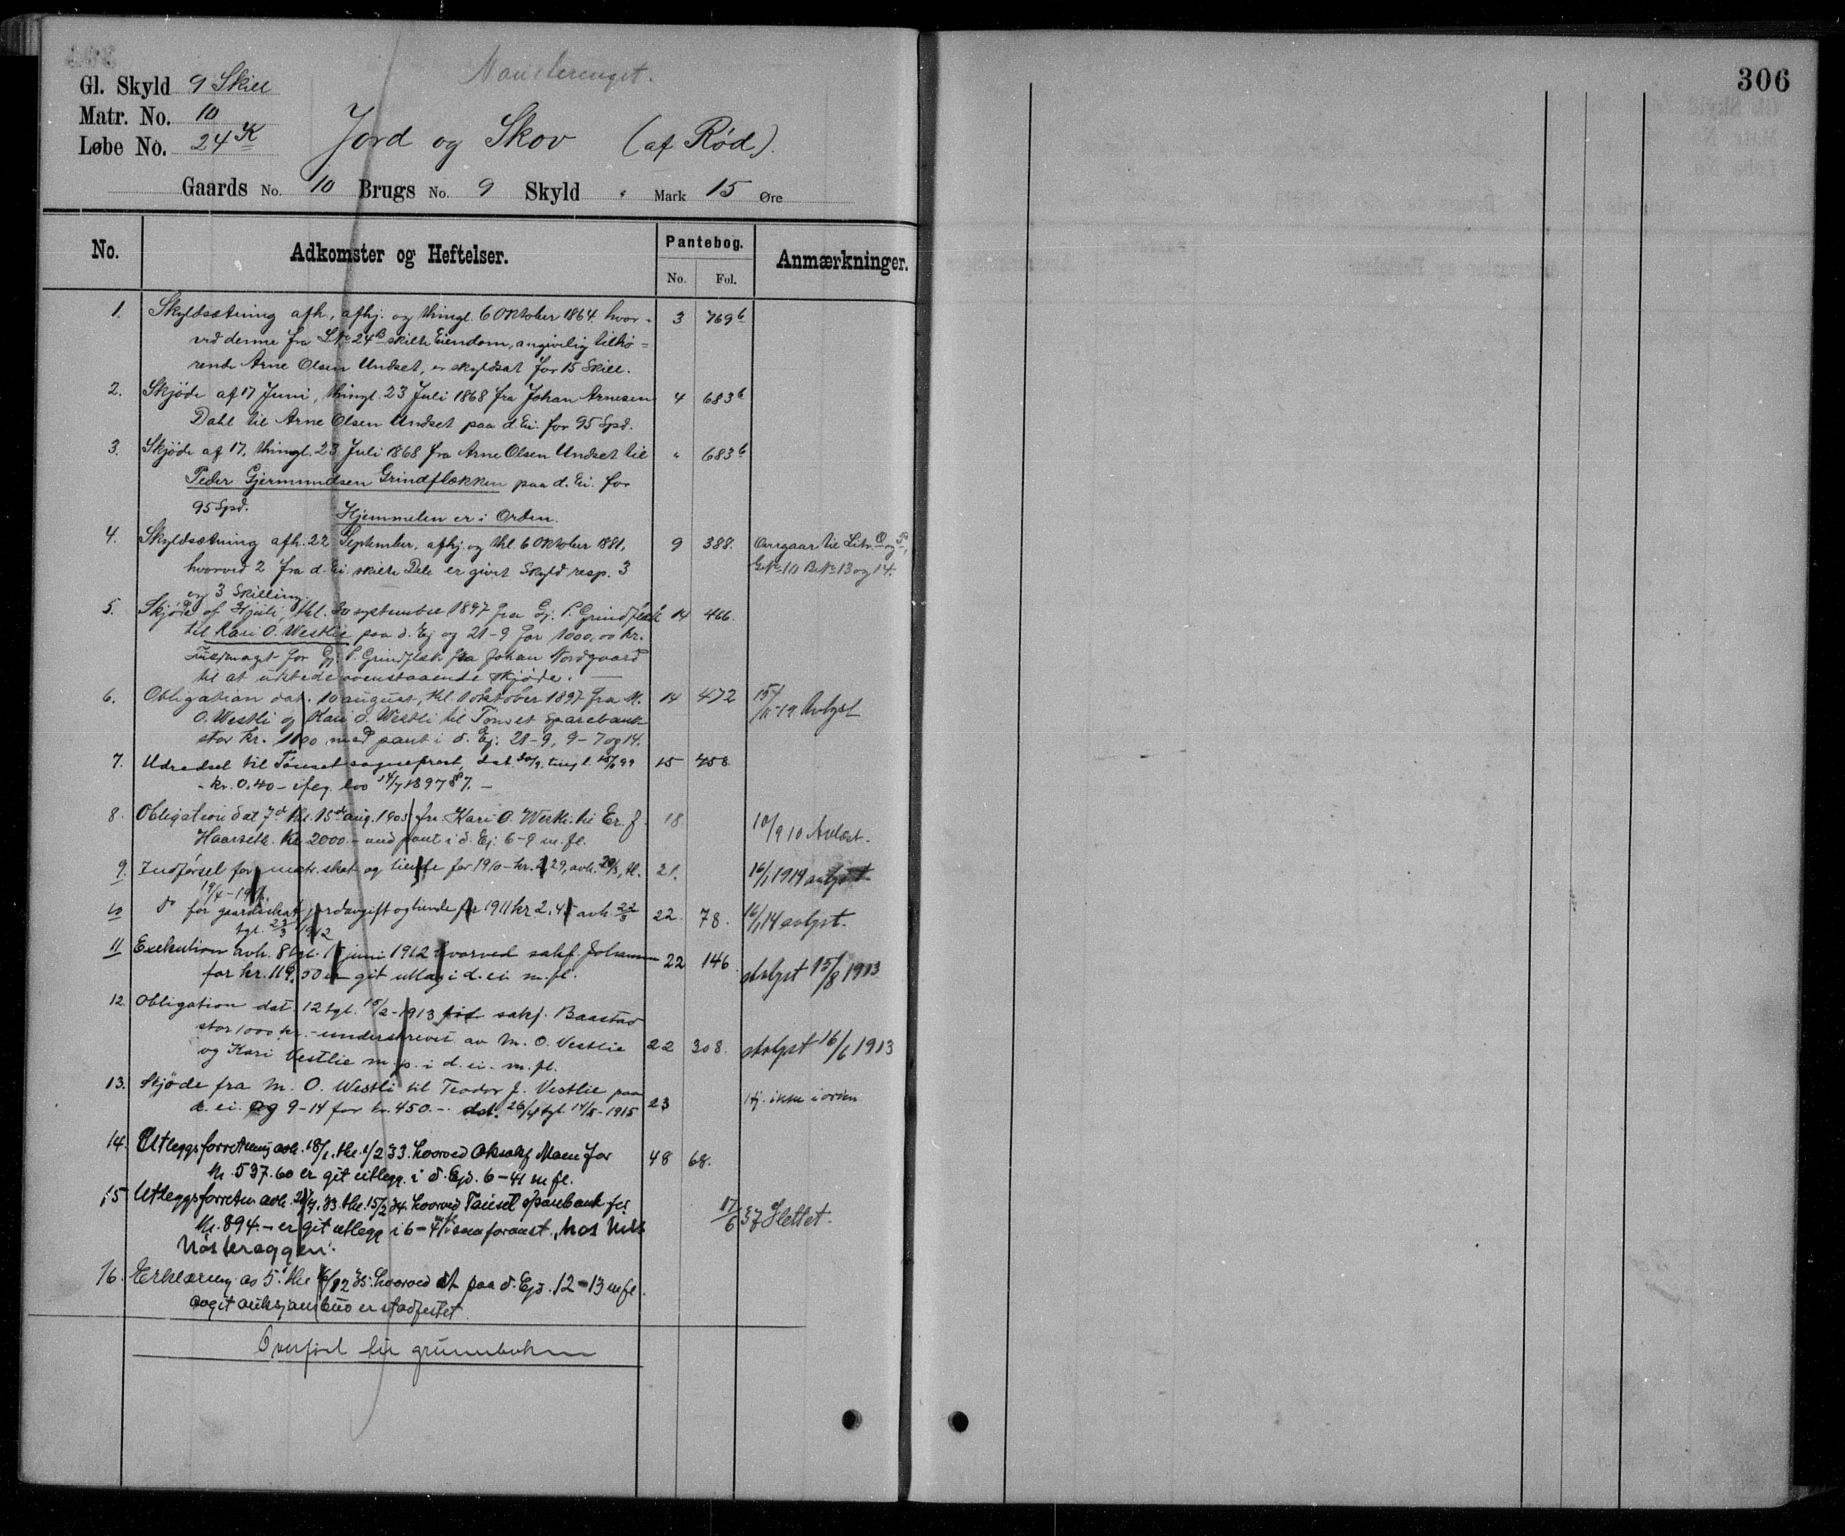 306
Gl. Skyld 9 Skill
Matr. No. 10
Løbe No. 24 K
Jord og Skov (af Rød).
Gaards No. 10 Brugs No. 9 Skyld " Mark 15 Øre
No. Adkomster og Heftelser. Pantebog. Anmærkninger.
No. Fol.
1. Skyldsætning afh., afhj. og thingl. 6 Oktober 1864 hvor- 3 769 b
ved denne fra LNo 24 B skilte Eiendom, angivelig tilhø-
rende Arne Olsen Undset, er skyldsat for 15 Skill.
2. Skjøde af 17 Juni, thingl. 23 Juli 1868 fra Johan Arnesen 4 683 b
Dahl til Arne Olsen Undset paa d. Ei. for 95 Spd.
3. Skjøde af 17, thingl. 23 Juli 1868 fra Arne Olsen Undset til " 683 b
Peder Gjermundsen Grindflækken paa d. Ei. for
95 Spd. Hjemmelen er i Orden.
4. Skyldsætning afh. 22 September, afhj. og thl. 6 Oktober 1881, 9 388. Overgaar til Litr. O og P,
hvorved 2 fra d. Ei. skilte Dele er givet Skyld resp. 3 GNo 10 BNo 13 og 14.
og 3 Skilling.
5. Skjøde af juli, thl. 30 september 1897 fra Gj. P. Grindflæk 14 466.
til Kari O. Westlie paa d. Ej og 21-9 for 1000,00 kr.
Fuldmagt for Gj. P. Grindflæk fra Johan Nordgaard
til at udstede ovenstaaende skjøde. —
6. Obligation dat. 10 august, thl. 1 oktober 1897 fra M. 14 472 15/11-19 Avlyst
O. Westli og Kari O. Westli til Tønset Sparebank
stor kr. 1100 med pant i d. Ej. 21-9, 9-7 og 14.
7. Udredsel til Tønset sogneprest, dat 30/9, tingl. 15/ 99 15 458
- kr. 0.40 - iføg. lov 14/7 1897 §7. -
8. Obligation dat 7de thl. 15de aug. 1905 fra Kari O. Westli til Er. J. 18 10/9 10 Avlæst.
Haarseth. Kr 2000.- med pant i d. Ej. 6-9 m. fl.
9. Indførsel for matr. skat og tiende for 1910 - kr. 2,29, avh. 20/3, tl. 21. 16/1 1914 avlyst
19/4-1911.
10 do for gaardskat, jordavgift og tiende for 1911 kr 2.45 avh. 22/3 22. 78. 16/1 14 avlyst.
tgl. 23/3 1912
11 Exekution avh. 8 tgl. 15 juni 1912 hvorved sakf. Johansen 22 146 Avlyst 15/8 1913
for kr. 119.50 er git utlæg i d. ei m. fl.
12. Obligation dat. 12 tgl. 15/2-1913 til sakf. Baastad
stor 1000 kr. - underskrevet av M. O. Vestlie 22 308. Avlyst 16/6 1913
og Kari Vestlie m. p. i d. ei. m. fl.
13. Skjøde fra M. O. Westli til Teodor J. Vestlie paa 23 Hj. ikke i orden
d. ei. og 9-14 for kr. 450.-. dat. 26/4 tgl. 14/5-1915
14. Utleggsforretning avh. 18/1. thl. 1/2 33. hvorved Oksakf Moen for 48 68.
kr. 537.60 er git utlegg i d. Ejd. 6-41 m fl.
15 Utleggsforretn avh. 33. thl. 15/2 34. hvorved Tønset Sparebank for 17/6 37 Slettet.
kr. 894.- er git utlegg i 6-41 som foranst. hos Nils
Nøsteraggen.
16. Erklæring av 5. thl 12 35. hvorved paa d. Ejd. 12-13 m fl.
avgit auksjonsbud er stadfestet.
Overført til grunnboken